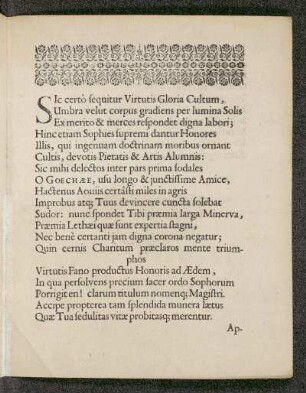 SIc certò sequitur Virtutis Gloria Cultum,
Umbra velut corpus gradiens per lumina Solis
Ex merito & merces respondet digna labori;
Hinc etiam Sophies suprema dantur Honores
Illis, qui ingenuam doctrinam moribus ornant
Cultis, devotis Pietatis & Artis Alumnis:
Sic mihi delectos inter pars prima sodales
O GOECHÆE, usu longo & junctissime Amice,
Hactenus Aoniis certâsti miles in agris
Improbus atq; Tuus devincere cuncta solebat
Sudor: nunc spondet Tibi præmia larga Minerva,
Præmia Lethæi quæ sunt expertia stagni,
Nec benè certanti jam digna corona negatur;
Quin cernis Charitum præclaros mente trium-
phos
Virtutis Fano productus Honoris ad Ædem,
In qua persolvens precium facer ordo Sophorum
Porrigit en! clarum titulum nomenq; Magistri.
Accipe propterea tam splendida munera lætus
Quæ Tua sedulitas vitæ probitasq; merentur.
Ap-